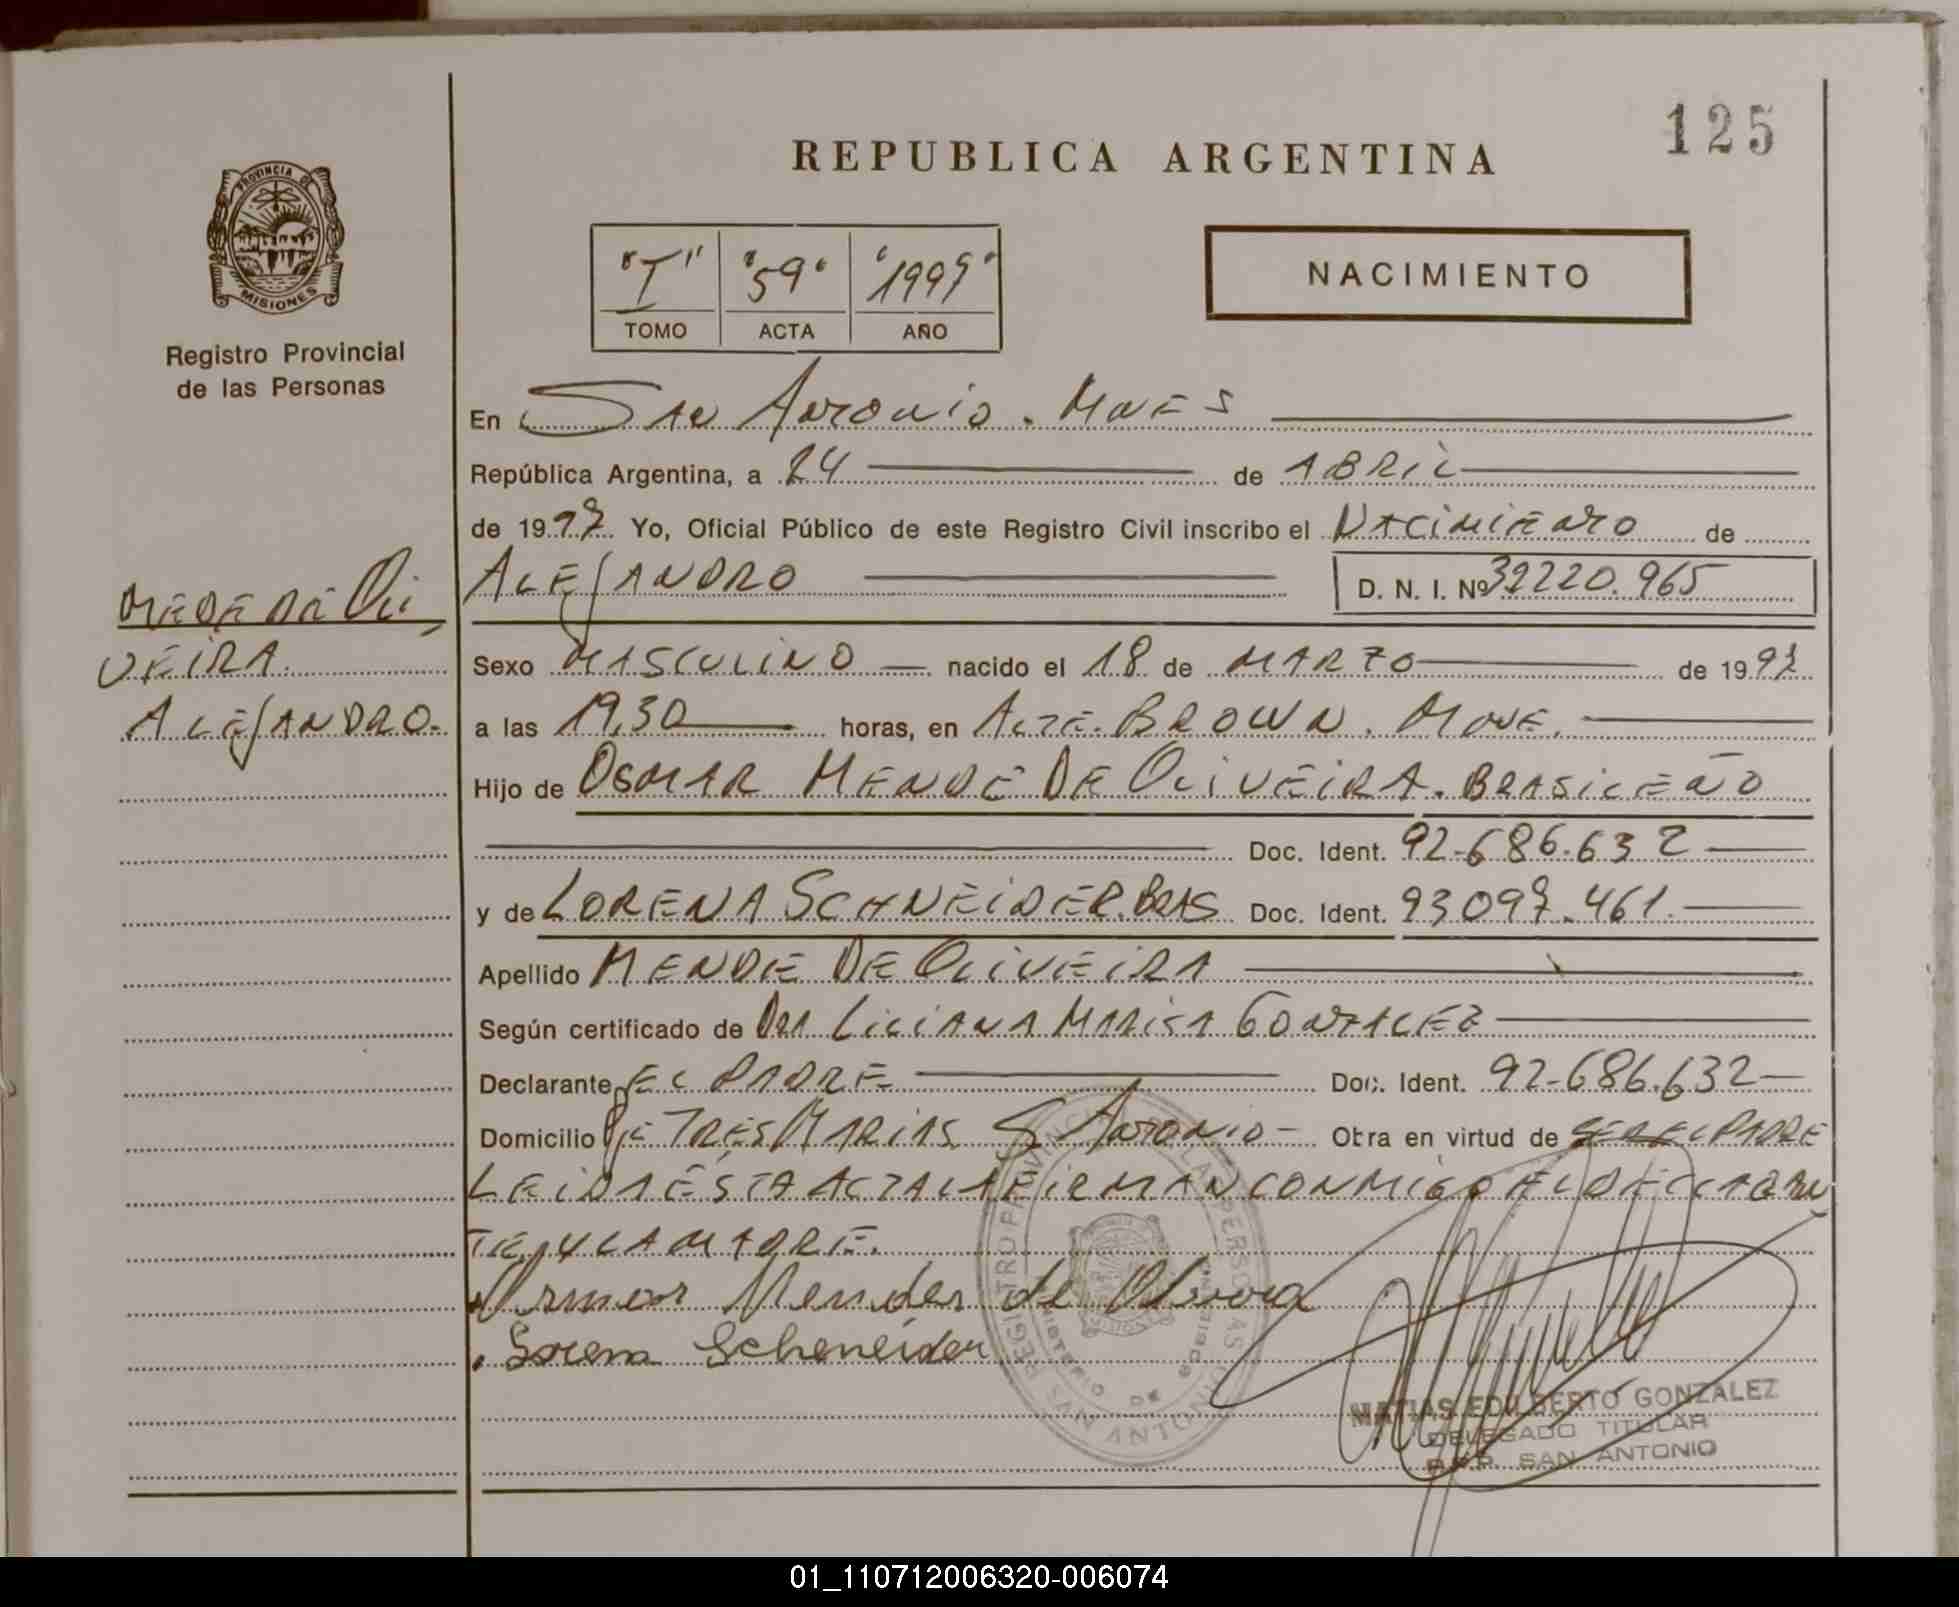 125
REPUBLICA ARGENTINA
PROVINCIA DE
MISIONES
Registro Provincial
de las Personas
"I" "59" "1997"
TOMO ACTA AÑO
NACIMIENTO
En SAN ANTONIO. MNES
República Argentina, a 24 de ABRIL
de 1997 Yo, Oficial Público de este Registro Civil inscribo el NACIMIENTO de
ALEJANDRO D. N. I. Nº 39220.965
MEDE DE OLI
VEIRA.
ALEJANDRO.
Sexo MASCULINO nacido el 18 de MARZO de 1997
a las 19,30 horas, en ALTE. BROWN. MNE.
Hijo de OSMAR MENDE DE OLIVEIRA. BRASILEÑO
Doc. Ident. 92.686.632
y de LORENA SCHNEIDER. BRAS Doc. Ident. 93097.461.
Apellido MENDE DE OLIVEIRA
Según certificado de DRA LILIANA MARISA GONZALEZ
Declarante EL PADRE Doc. Ident. 92.686.632
Domicilio TRES MARIAS S ANTONIO Obra en virtud de SER EL PADRE
LEIDA ÉSTA ACTA LA FIRMAN CONMIGO EL DECLARAN
TE, Y LA MADRE.
Mendes de
Lorena Scheneider
REGISTRO PROVINCIAL DE LAS PERSONAS
SAN ANTONIO
MATIAS EDILBERTO GONZALEZ
DELEGADO TITULAR
R.P.P. SAN ANTONIO
01_110712006320-006074